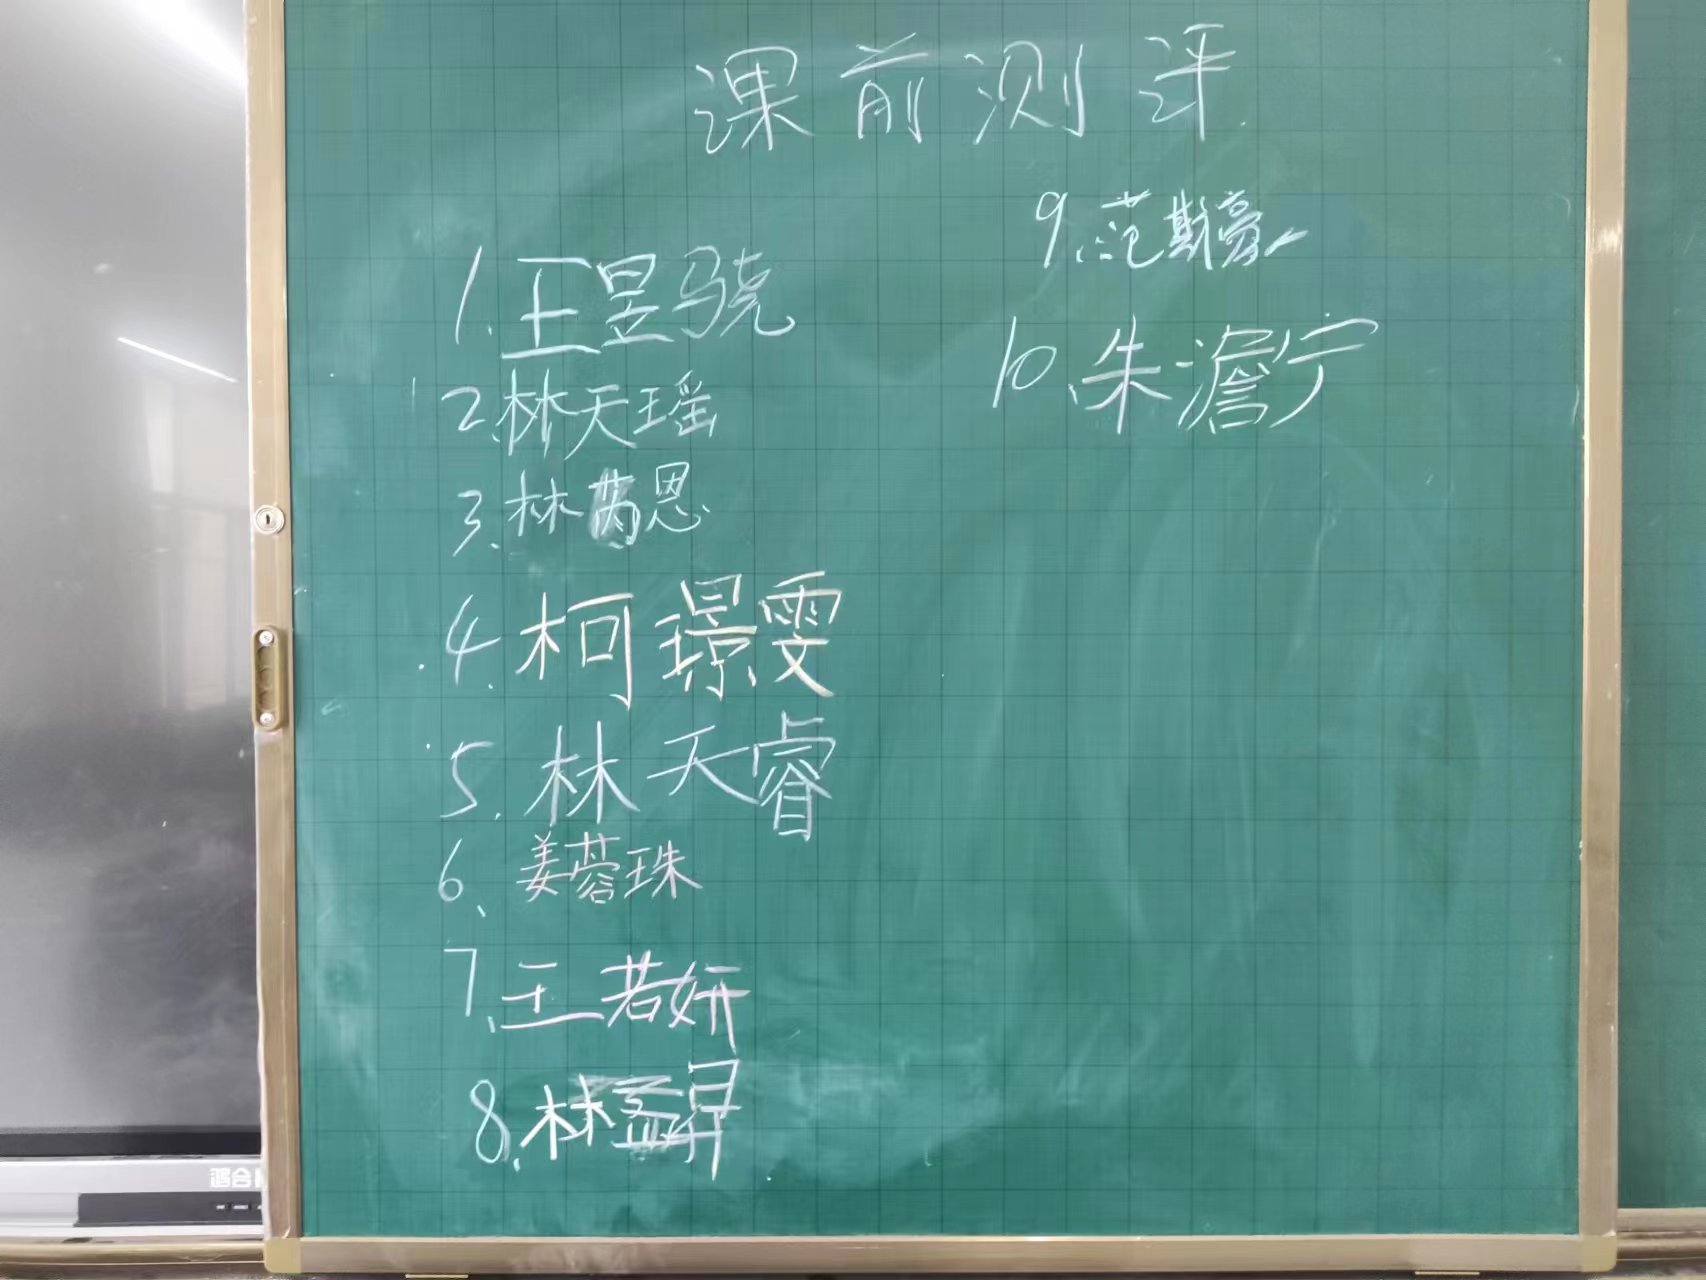 课前测评
1.王昱骁
2.林天瑶
3.林芮恩
4.柯璟雯
5.林天睿
6、姜蓉珠
7、王若妍
8.林孟昇
9.范斯豪
10.朱澹宁
鸿合